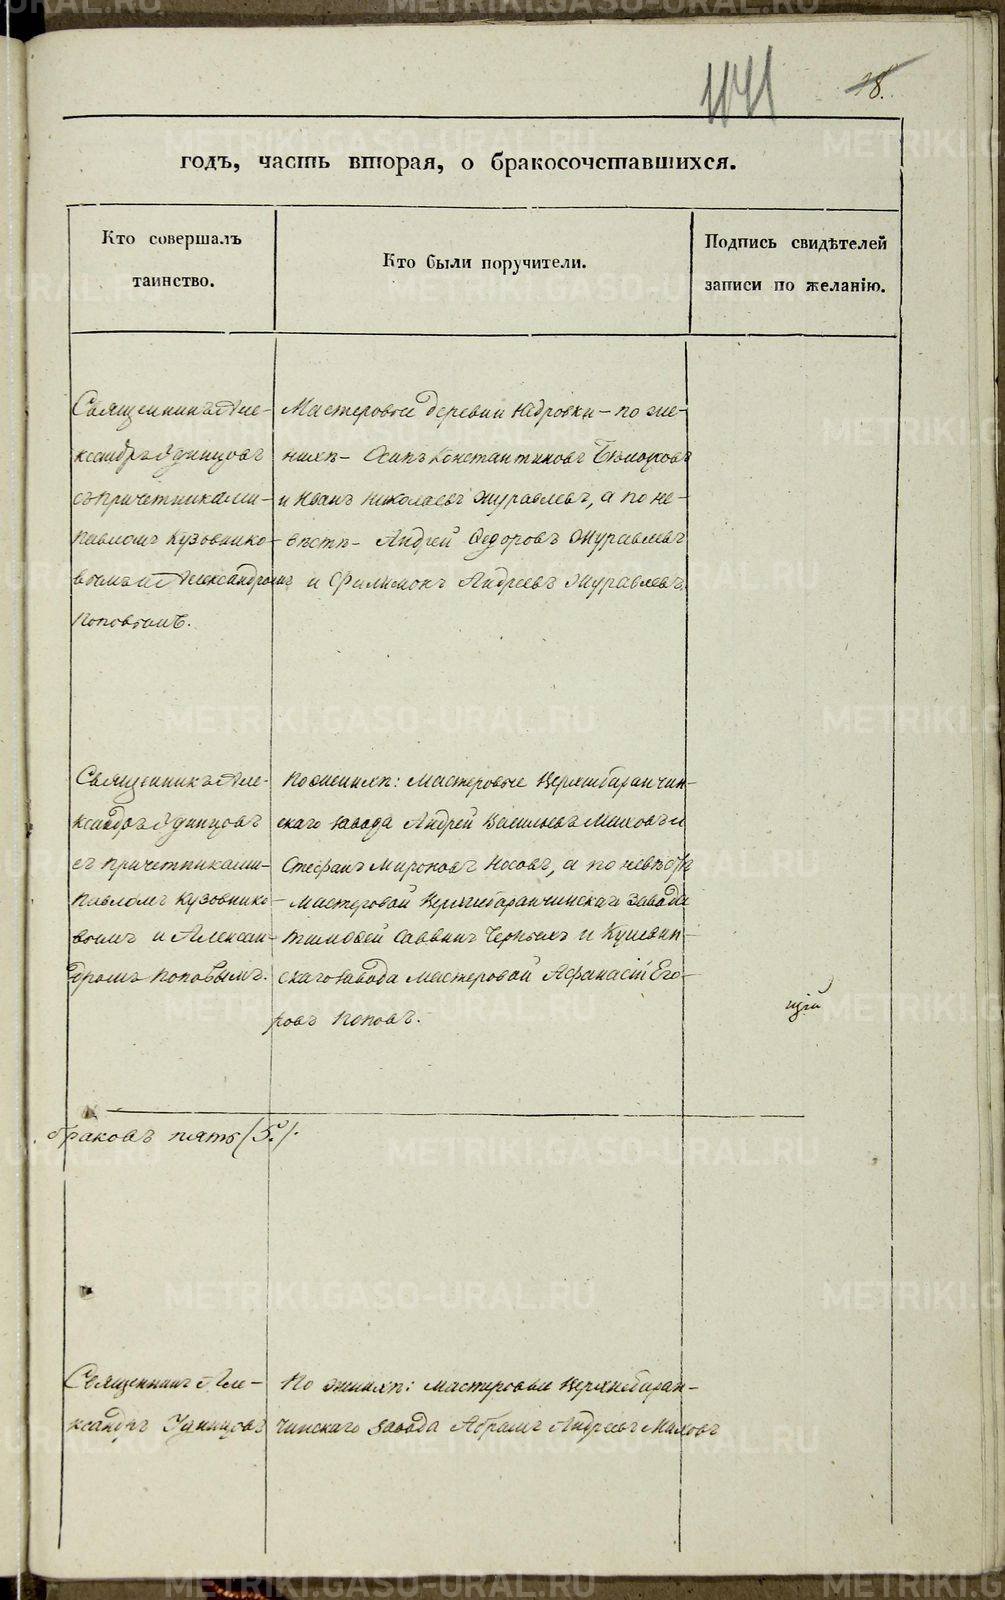 141
28.
годъ, часть вторая, о бракосочетавшихся.
Кто совершалъ
таинство.
Кто были поручители.
Подпись свидѣтелей
записи по желанію.
Священникъ Але-
ксандръ Удинцовъ
съ причетниками
Павломъ Кузовнико-
вымъ и Александромъ
Поповымъ.
Мастеровые деревни Кедровки - по же-
нихѣ - Осипъ Константиновъ
и Иванъ Николаевъ Журавлевъ, а по не-
вѣстѣ - Андрей Федоровъ Журавлевъ
и Филимонъ Андреевъ Журавлевъ.
Священникъ Але-
ксандръ Удинцовъ
съ причетниками
Павломъ Кузовнико-
вымъ и Алексан-
дромъ Поповымъ.
По женихѣ: мастеровые Верхнебаранчин-
скаго завода Андрей Васильевъ Маховъ и
Стефанъ Мироновъ Носовъ, а по невѣстѣ
Мастеровой Верхнебаранчинскаго завода
Тимофей Саввинъ Черныхъ и Кушвин-
скаго завода мастеровой Афанасій Его-
ровъ Поповъ.
щій
браковъ пять (5.).
Священникъ Але-
ксандръ Удинцовъ
По женихѣ: мастеровые Верхнебаран-
чинскаго завода Абрамъ Андреевъ Маховъ
METRIKI.GASO-URAL.RU